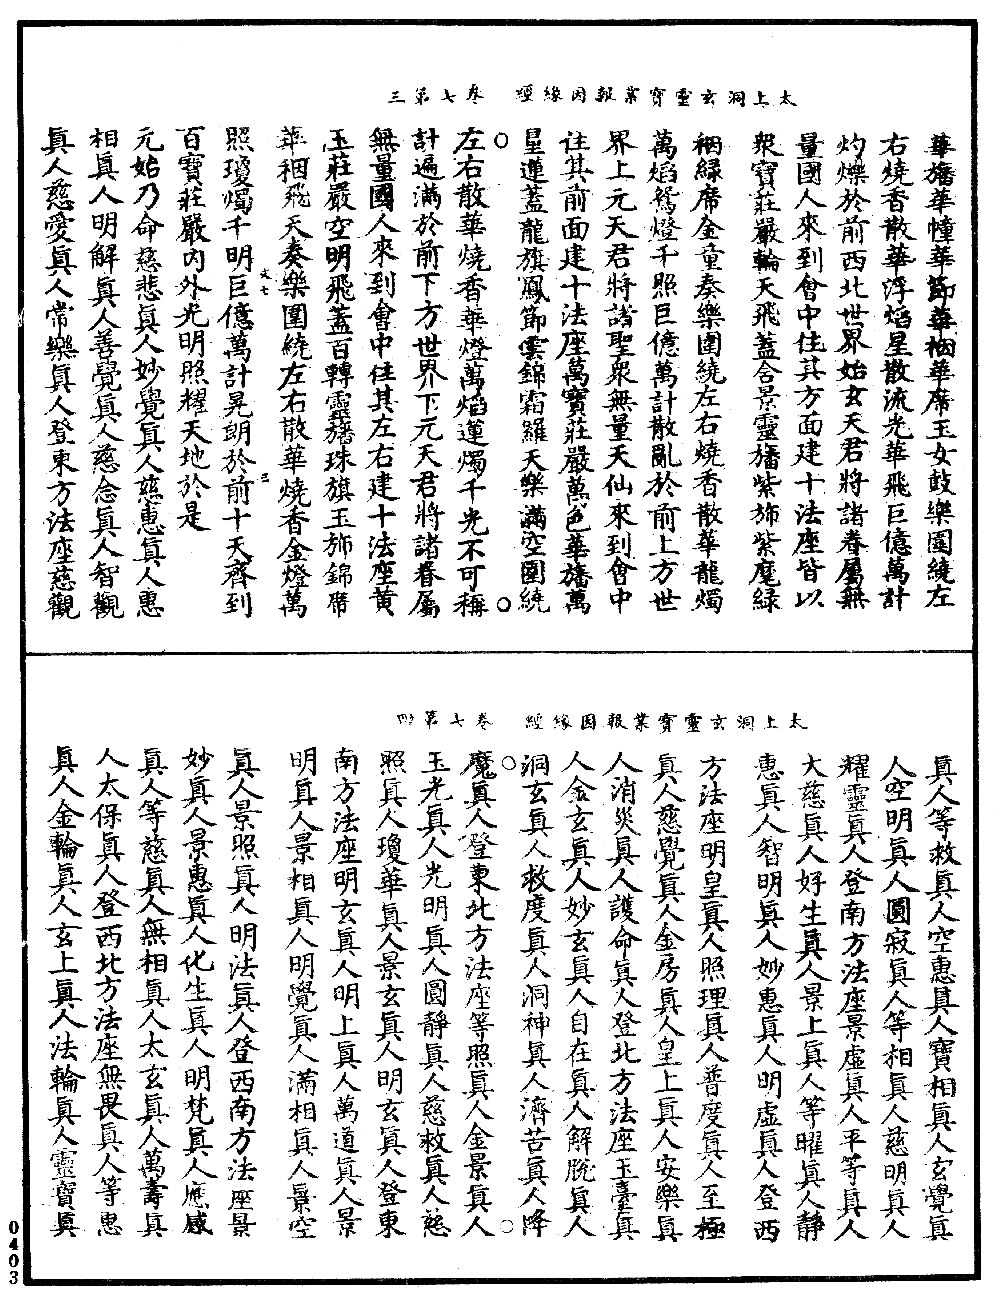 太上洞玄靈寶業報因緣經 卷七第三
華旛華幢華節華裀華席玉女鼓樂圍繞左
右燒香散華浮焰星散流光華飛巨億萬計
灼爍於前西北世界始玄天君將諸眷屬無
量國人來到會中住其方面建十法座皆以
衆寶莊嚴輪天飛蓋合景靈旛紫旆紫麾綠
裀綠席金童奏樂圍繞左右燒香散華龍燭
萬焰鴛燈千照巨億萬計散亂於前上方世
界上元天君將諸聖衆無量天仙來到會中
住其前面建十法座萬寶莊嚴萬色華旛萬
星蓮蓋龍旗鳳節雲錦霜羅天樂滿空圍繞
左右散華燒香華燈萬焰蓮燭千光不可稱
計遍滿於前下方世界下元天君將諸眷屬
無量國人來到會中住其左右建十法座黃
玉莊嚴空明飛蓋百轉靈旛珠旗玉旆錦席
華裀飛天奏樂圍繞左右散華燒香金燈萬
照瓊燭千明巨億萬計晃朗於前十天齊到
百寶莊嚴內外光明照耀天地於是
元始乃命慈悲真人妙覺真人慈惠真人惠
相真人明解真人善覺真人慈念真人智觀
真人慈愛真人常樂真人登東方法座慈觀
太上洞玄靈寶業報因緣經 卷七第四
真人等救真人空惠真人寶相真人玄覺真
人空明真人圓寂真人等相真人慈明真人
耀靈真人登南方法座景虛真人平等真人
大慈真人好生真人景上真人等曜真人靜
惠真人智明真人妙惠真人明虛真人登西
方法座明皇真人照理真人普度真人至極
真人慈覺真人金房真人皇上真人安樂真
人消災真人護命真人登北方法座玉臺真
人金玄真人妙玄真人自在真人解脫真人
洞玄真人救度真人洞神真人濟苦真人降
魔真人登東北方法座等照真人金景真人
玉光真人光明真人圓靜真人慈救真人慈
照真人瓊華真人景玄真人明玄真人登東
南方法座明玄真人明上真人萬道真人景
明真人景相真人明覺真人滿相真人景空
真人景照真人明法真人登西南方法座景
妙真人景惠真人化生真人明梵真人應感
真人等慈真人無相真人太玄真人萬壽真
人太保真人登西北方法座無畏真人等惠
真人金輪真人玄上真人法輪真人靈寶真
0403